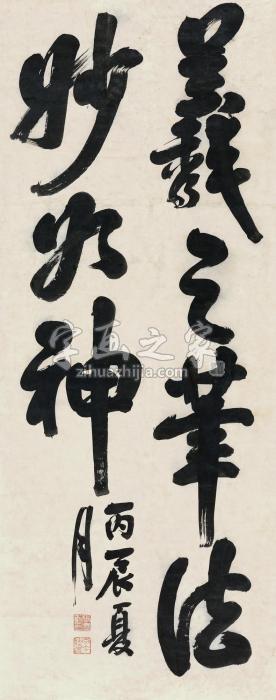 羲之筆法
妙如神
丙辰夏
月
字画之家
zihuazhijia.com